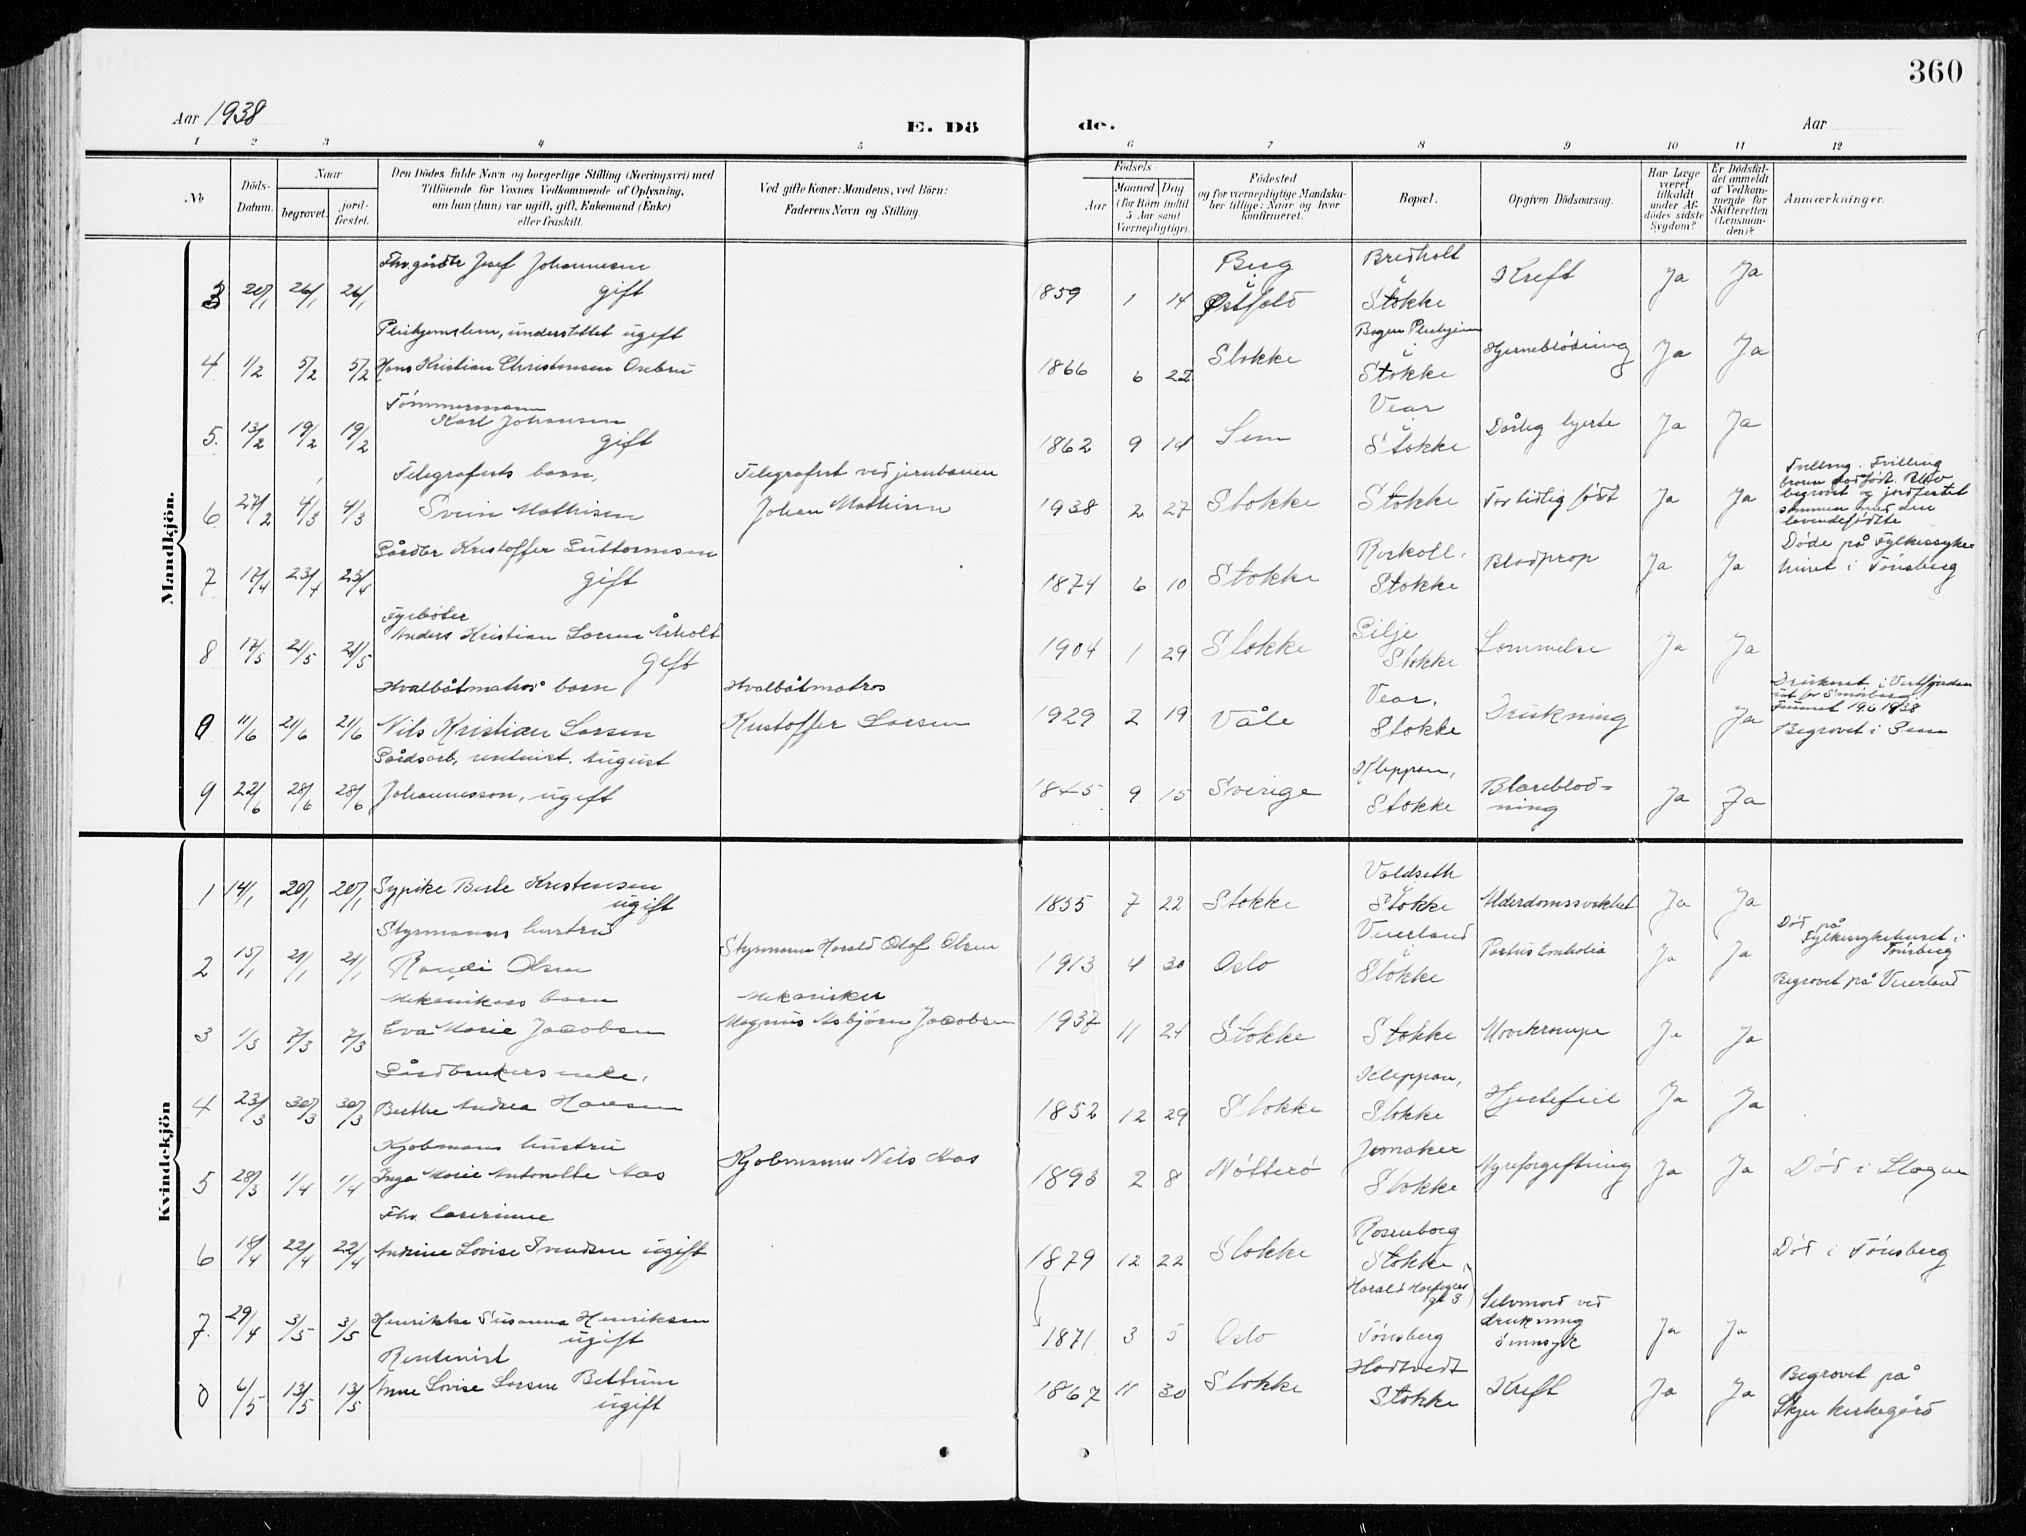 360
Aar 1938
E. Dö
de.
Aar
1 2 3 4 5 6 7 8 9 10 11 12
No
Döds-Datum.
Naar
begravet.
jord-fæstet.
Den Dödes fulde Navn og borgerlige Stilling (Næringsvei) med
Tilföiende for Voxnes Vedkommende af Oplysning,
om han (hun) var ugift, gift, Enkemand (Enke)
eller fraskilt.
Ved gifte Koner: Mandens, ved Börn:
Faderens Navn og Stilling.
Födsels-
Aar
Maaned Dag
(for Börn indtil
5 Aar samt
Værnepligtige).
Födested
og for værnepligtige Mandska-
ber tillige: Naar og hvor
konfirmeret.
Bopæl.
Opgiven Dödsaarsag.
Har Læge
været
tilkaldt
under Af-
dödes sidste
Sygdom?
Er Dödsfal-
det anmeldt
af Vedkom-
mende for
Skifteretten
(Lensman-
den)?
Anmærkninger.
Mandkjön.
Fhv. gårdbr Josef Johannesen
gift
3 20/1 26/1 26/1
1859 1 14 Berg i Østfold Bredholt i Stokke Kreft Ja Ja
Pleiehjemslem, understøttet ugift
4 1/2 5/2 5/2 Hans Kristian Christensen Orebru
1866 6 22 Stokke Bogen Pleiehjem i Stokke Hjerneblødning Ja Ja
Tömmermann
Karl Johansen
5. 13/2 19/2 19/2 gift
1862 9 14 Sem Vear i Stokke Dårlig hjerte Ja Ja
Telegrafists barn, Telegrafist ved jernbanen
6 27/2 4/3 4/3 Svein Mathisen Johan Mathisen
1938 2 27 Stokke Stokke For tidlig født Ja Ja
Tvilling. Tvilling
broren dødfødt. Blev
begravet og jordfestet
sammen med den
levendefødte
Gårdbr Kristoffer Guttormsen
7 17/4 23/4 23/4 gift
1874 6 10 Stokke Roskoll. Stokke Blodprop Ja Ja
Døde på Fylkessyke
huset i Tönsberg
Fyrbøter
Anders Kristian Larsen Årholt
8 17/5 21/5 21/5 gift
1904 1 29 Stokke Gilje Stokke Lammelse Ja Ja
Hvalbåtmatros' barn Hvalbåtmatros
11/6 21/6 21/6 Nils Kristian Larsen Kristoffer Larsen
1929 2 19 Våle Vear, Stokke Drukning Ja
Druknet i Vestfjorden
ut for Smörberg
Funnet 19.6 1938
Begravet i Sem
Gårdsarb, rentenist. August
9 22/6 28/6 28/6 Johannesson, ugift
1845 9 15 Sverige Kleppan, Stokke Blæreblød-
ning Ja Ja
Kvindekjön
1 14/1 20/1 20/1 Sypike Berte Kristensen
ugift
1855 7 22 Stokke Valdseth i Stokke Alderdomssvakhet Ja Ja
Styrmanns hustru
2 15/1 21/1 21/1 Randi Olsen Styrmann Harald Olaf Olsen
1913 4 30 Oslo Veierland i Stokke Partus Embolia Ja Ja
Død på
Fylkessykehuset i
Tönsberg
Begravet på Veierland
Mekanikers barn Mekaniker
3 1/3 7/3 7/3 Eva Marie Jacobsen Magnus Asbjörn Jacobsen
1937 11 24 Stokke Stokke Urvekrampe Ja Ja
Gårdbrukers enke,
4 23/3 30/3 30/3 Berthe Andrea Hansen
1852 12 29 Stokke Kleppan, Stokke Hjertefeil Ja Ja
Kjøbmanns hustru
5 28/3 1/4 1/4 Inga Marie Antonette Aas Kjøbmann Nils Aas
1893 2 8 Nötterö Jernaker Stokke Nyreforgiftning Ja Ja Död i Slagen
Fhv. lærerinne
6 18/4 22/4 22/4 Andrine Lovise Svendsen ugift
1879 12 22 Stokke Rosenborg Stokke, Död i Tönsberg
7. 29/4 3/5 3/5 Henrikke Susanna Henriksen
ugift
1871 3 5 Oslo Harald Hårfagres gt 3) Tönsberg Selvmord ved
drukning
sinnsyk Ja Ja
Rentenist
6/5 13/5 13/5 Anne Lovise Larsen Bettum
ugift
1867 11 30 Stokke Hodtvedt Stokke Kreft Ja Ja
Begravet på
Skjee kirkegård